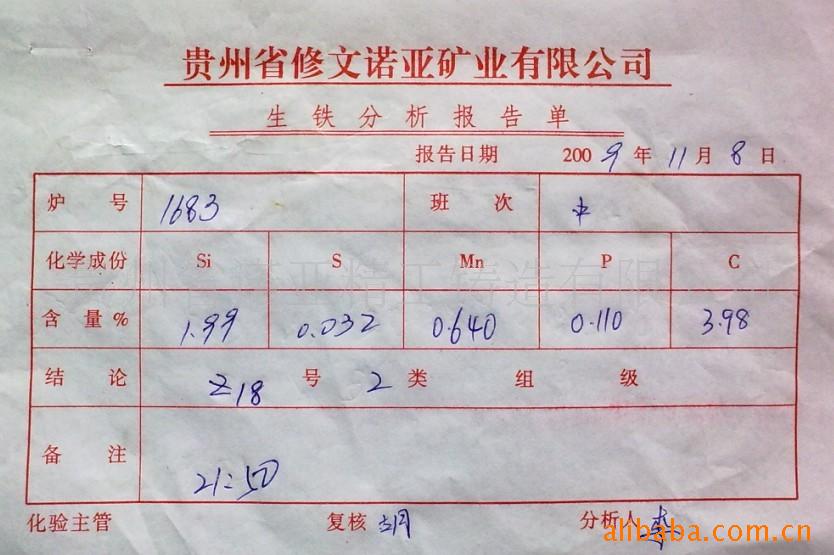 贵州省修文诺亚矿业有限公司
生铁分析报告单
报告日期 2009年11月8日
炉号 1683 班次 中
化学成份 Si S Mn P C
含量% 1.99 0.032 0.640 0.110 3.98
结论 Z18号 2类 组 级
备注 21:50
化验主管 复核 胡 分析人 李
alibaba.com.cn